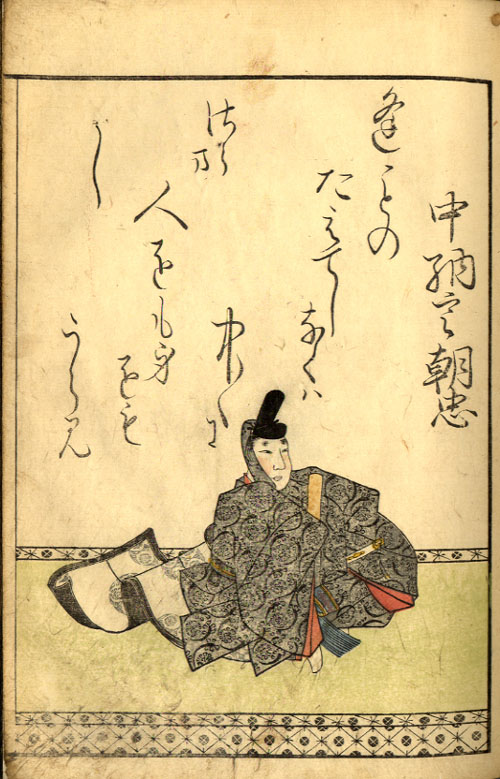 中納言朝忠
逢ことの
たえてし
なくハ
中〱に
人をも身
をも
うらみ
さらま
し